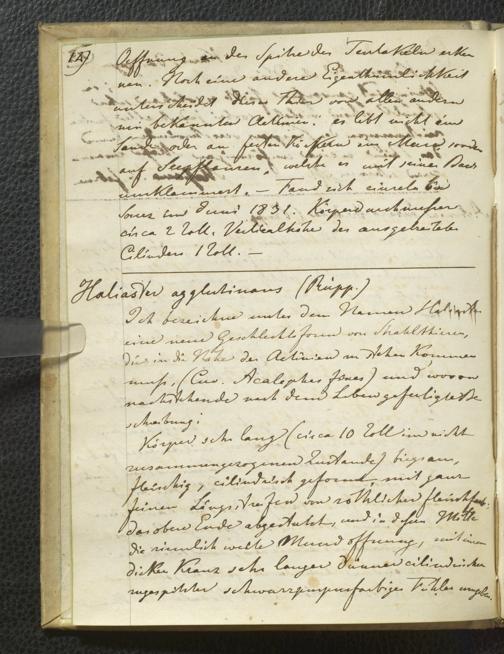 Oeffnung an der Spitze des Tentakeln erken
nen. Noch eine andere Eigenthümlichkeit
unterscheidet diese Thier von allen andern
mir bekannten Actinien, es lebt nicht im
Sande oder an festen Körpern im Meere, sondern
auf Seepflanzen, welche es mit seiner Basis
umklammert. — Fand sich einzeln bei
im Juni 1831. Körperdurchmesser
circa 2 Zoll. Verticalhöhe des ausgestreckten
Cilinders 1 Zoll. —
Haliaster agglutinans (Rüpp.)
Ich bezeichne unter dem Namen
eine neue Geschlechtsform von Strahlthieren,
die in die Nähe der Actinien zu stehen kommen
muss, (Cuv. Acalephes fixes) und wovon
nachstehende nach dem Leben gefertigte Be
schreibung:
Körper sehr lang (circa 10 Zoll im nicht
zusammengezogenen Zustande) biegsam,
fleischig, cilindrisch geformt, mit ganz
feinen Längsstreifen von röthlicher
das obere Ende abgestutzt, und in dessen Mitte
die ziemlich weite Mundöffnung, mit einem
dicken Kranz sehr langer dünner cilindrischer
zugespitzter schwarzpurpurfarbiger Fühler umgeben.